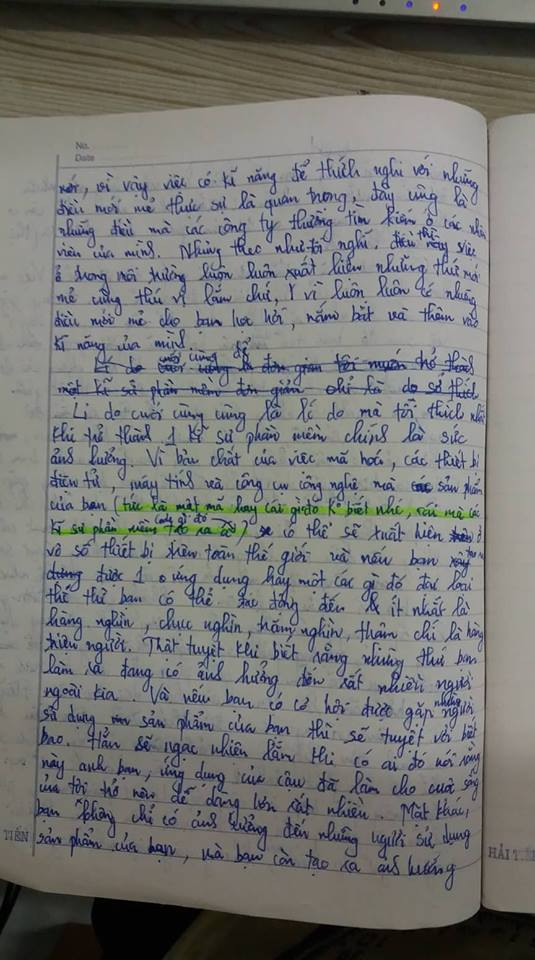 No.
Date
mới, vì vậy việc có kĩ năng để thích nghi với những
điều mới mẻ thực sự là quan trọng, đây cũng là
những điều mà các công ty thường tìm kiếm ở các nhân
viên của mình. Nhưng theo như tôi nghĩ, điều này thì việc
ở trong môi trường luôn luôn xuất hiện những thứ mới
mẻ cũng thú vị lắm chứ, vì luôn luôn có những
điều mới mẻ cho bạn học hỏi, nắm bắt và thêm vào
kĩ năng của mình.
Lí do cuối cùng để
một kĩ sư phần mềm đơn giản chỉ là do sở thích
Lí do cuối cùng cũng là lí do mà tôi thích nhất
khi trở thành 1 kĩ sư phần mềm chính là sức
ảnh hưởng. Vì bản chất của việc mã hoá, các thiết bị
điện tử, máy tính và công cụ công nghệ mà sản phẩm
của bạn (tức là mật mã hay cái gì đó k biết nhé, cái mà các
kĩ sư phần mềm tạo ra ấy) có thể sẽ xuất hiện ở
vô số thiết bị trên toàn thế giới và nếu bạn tạo ra
được 1 ứng dụng hay một cái gì đó đại loại
thế thì bạn có thể tác động đến ít nhất là
hàng nghìn, chục nghìn, trăm nghìn, thậm chí là hàng
triệu người. Thật tuyệt khi biết rằng những thứ bạn
làm ra đang có ảnh hưởng đến rất nhiều người
ngoài kia. Và nếu bạn có cơ hội được gặp những người
sử dụng sản phẩm của bạn thì sẽ tuyệt vời biết
bao. Hẳn sẽ ngạc nhiên lắm khi có ai đó nói rằng
này anh bạn, ứng dụng của cậu đã làm cho cuộc sống
của tôi trở nên dễ dàng hơn rất nhiều. Mặt khác,
bạn không chỉ có ảnh hưởng đến những người sử dụng
sản phẩm của bạn, mà bạn còn tạo ra ảnh hưởng
TIẾN
HẢI TIẾN